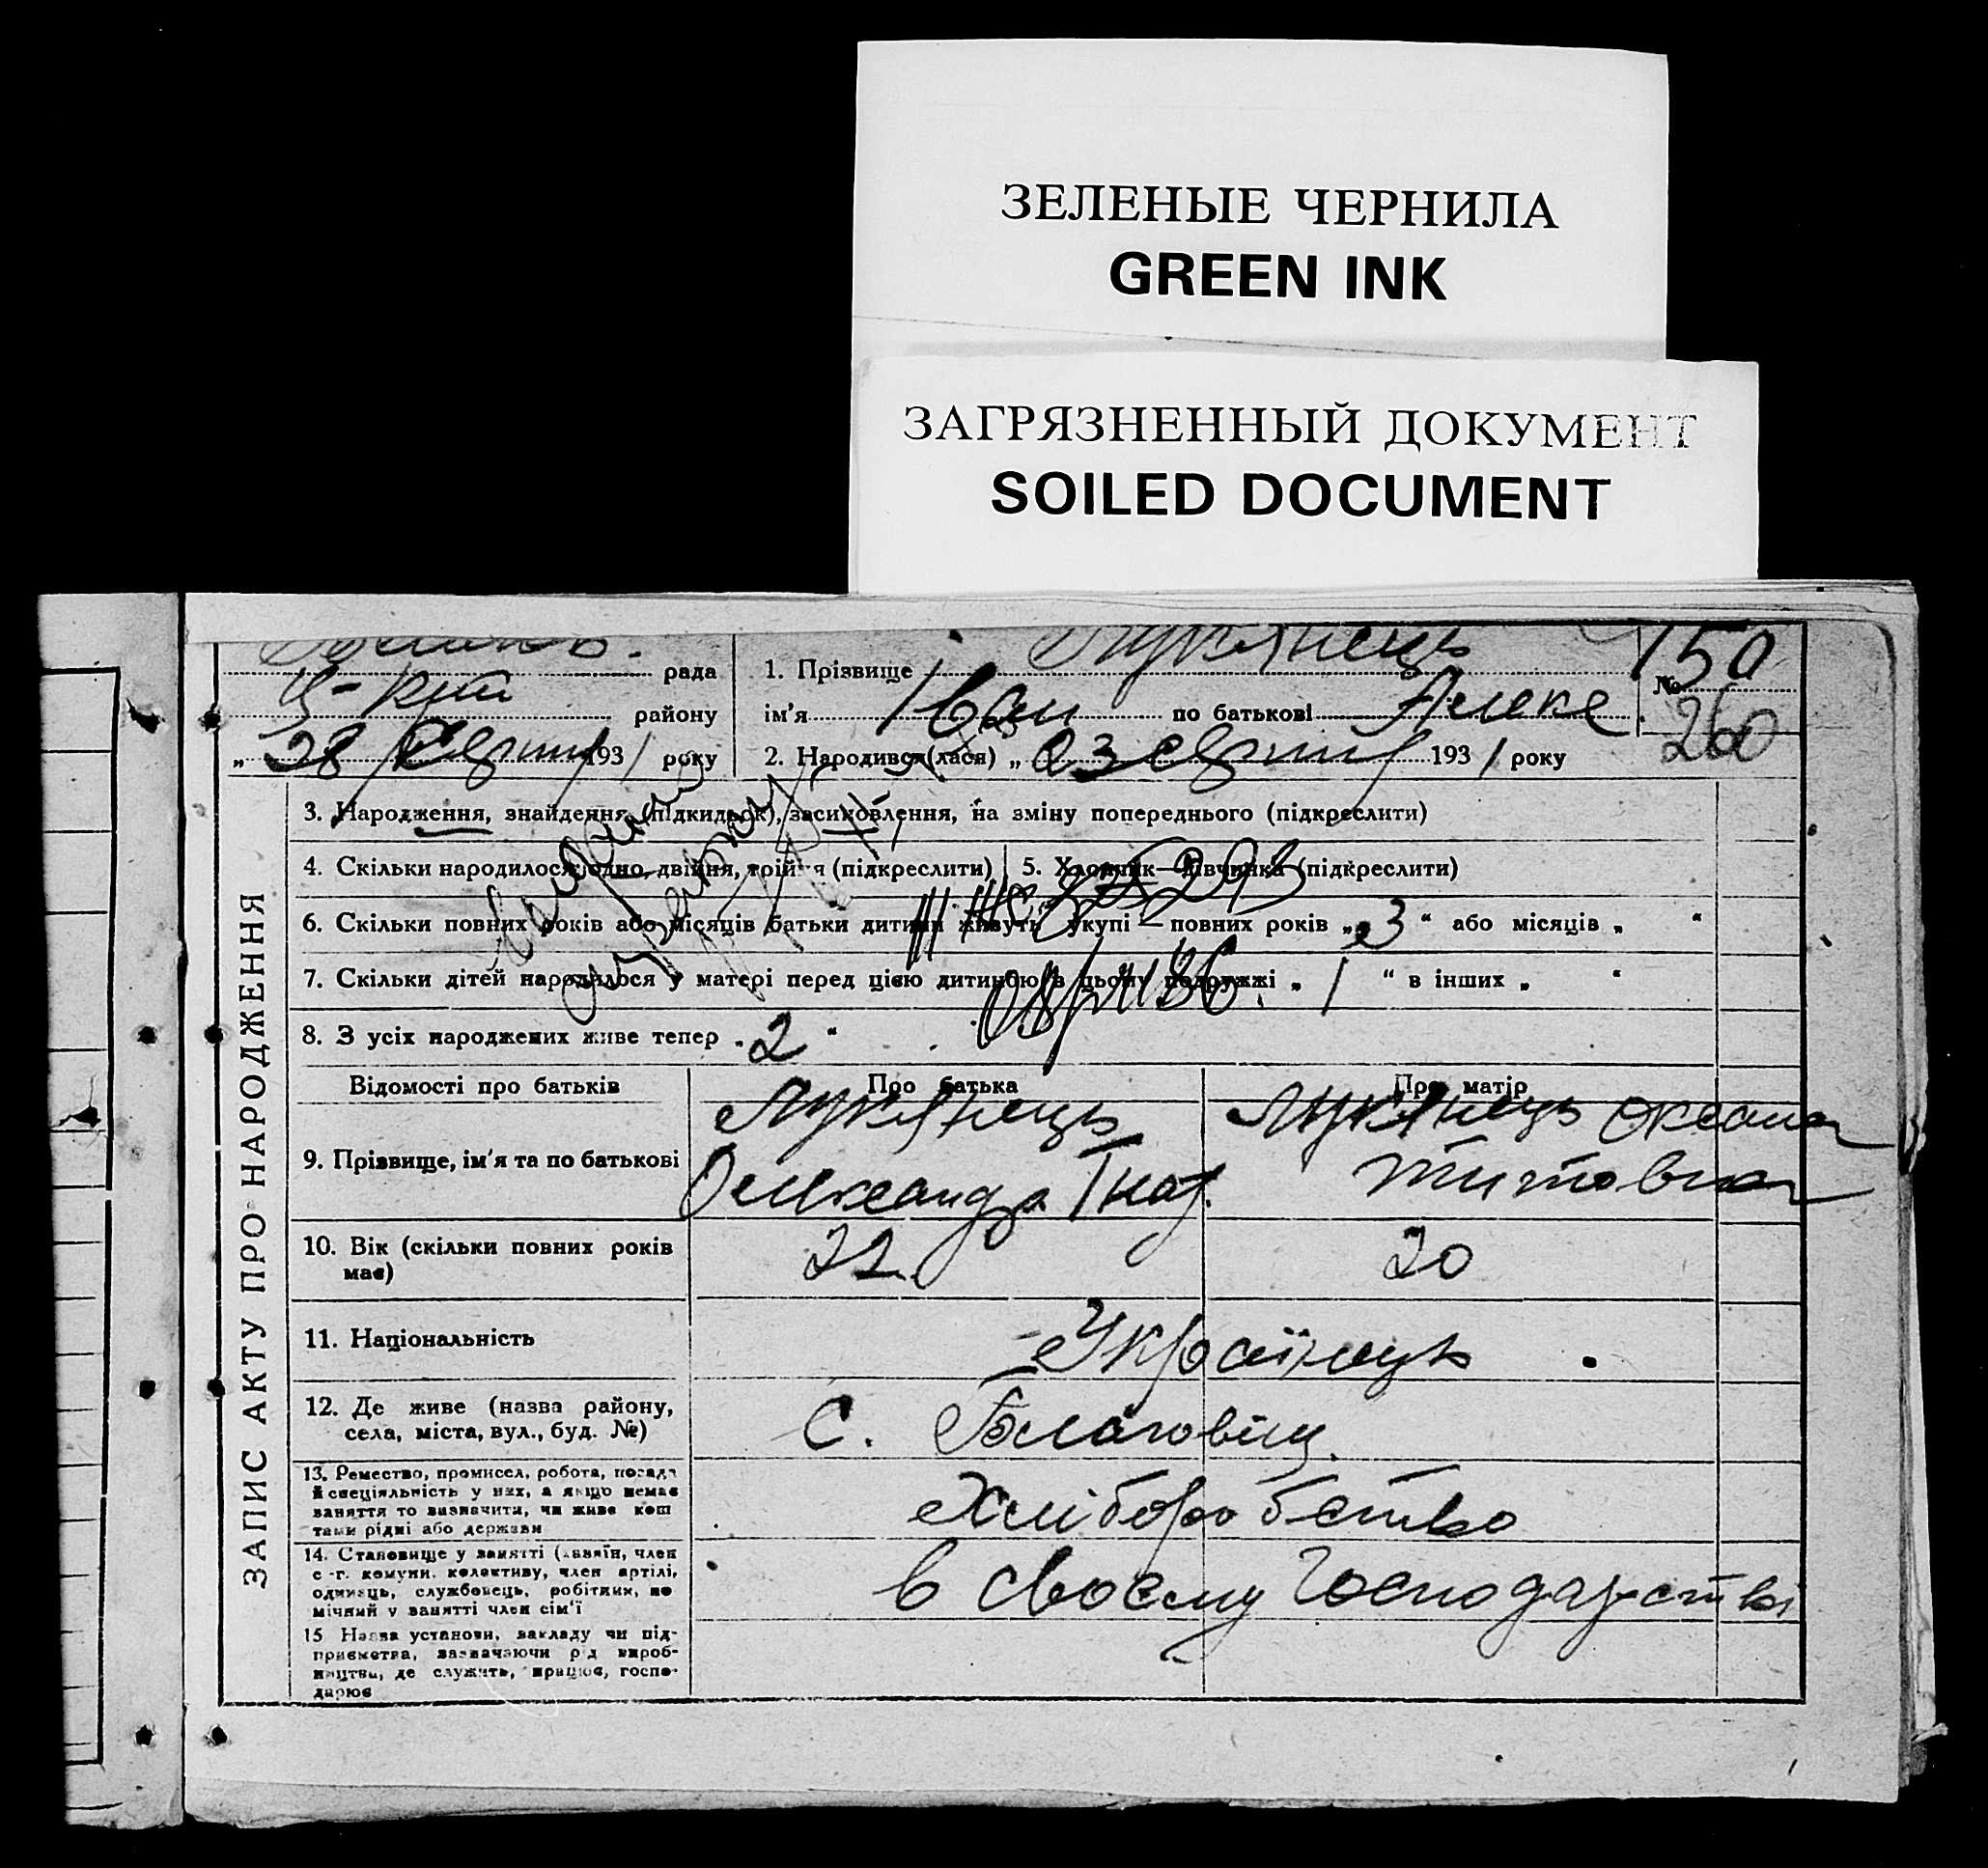 ЗЕЛЕНЫЕ ЧЕРНИЛА
GREEN INK
ЗАГРЯЗНЕННЫЙ ДОКУМЕНТ
SOILED DOCUMENT
ЗАПИС АКТУ ПРО НАРОДЖЕННЯ
рада
району
„28 серпня 1931 року
1. Прізвище Лукянець
№ 150
260
ім'я Іван по батькові Алекс
2. Народився(лася) „23 серпня 1931 року
3. Народження, знайдення (підкидьок), засиновлення, на зміну попереднього (підкреслити)
4. Скільки народилося: одно, двійня, трійня (підкреслити)
5. Хлопчик—дівчинка (підкреслити)
6. Скільки повних років або місяців батьки дитини живуть укупі — повних років „3“ або місяців „ “
7. Скільки дітей народилося у матері перед цією дитиною в цьому подружжі „1“ в інших „ “
8. З усіх народжених живе тепер „2“
Відомості про батьків Про батька Про матір
9. Прізвище, ім'я та по батькові
Лукянець
Олександр Гнат.
Лукянець Оксана
Титовна
10. Вік (скільки повних років має)
22
20
11. Національність
Українець
12. Де живе (назва району, села, міста, вул., буд. №)
С. Благовіщ.
13. Ремество, промисел, робота, посада й спеціяльність у них, а якщо немає заняття то визначити, чи живе коштами рідні або держави
Хліборобство
14. Становище у занятті (хазяїн, член с.-г. комуни, колективу, член артілі, одинець, службовець, робітник, помічний у занятті член сім'ї
в своєму господарстві
15 Назва установи, закладу чи підприємства, зазначаючи рід виробництва, де служить, працює, господарює